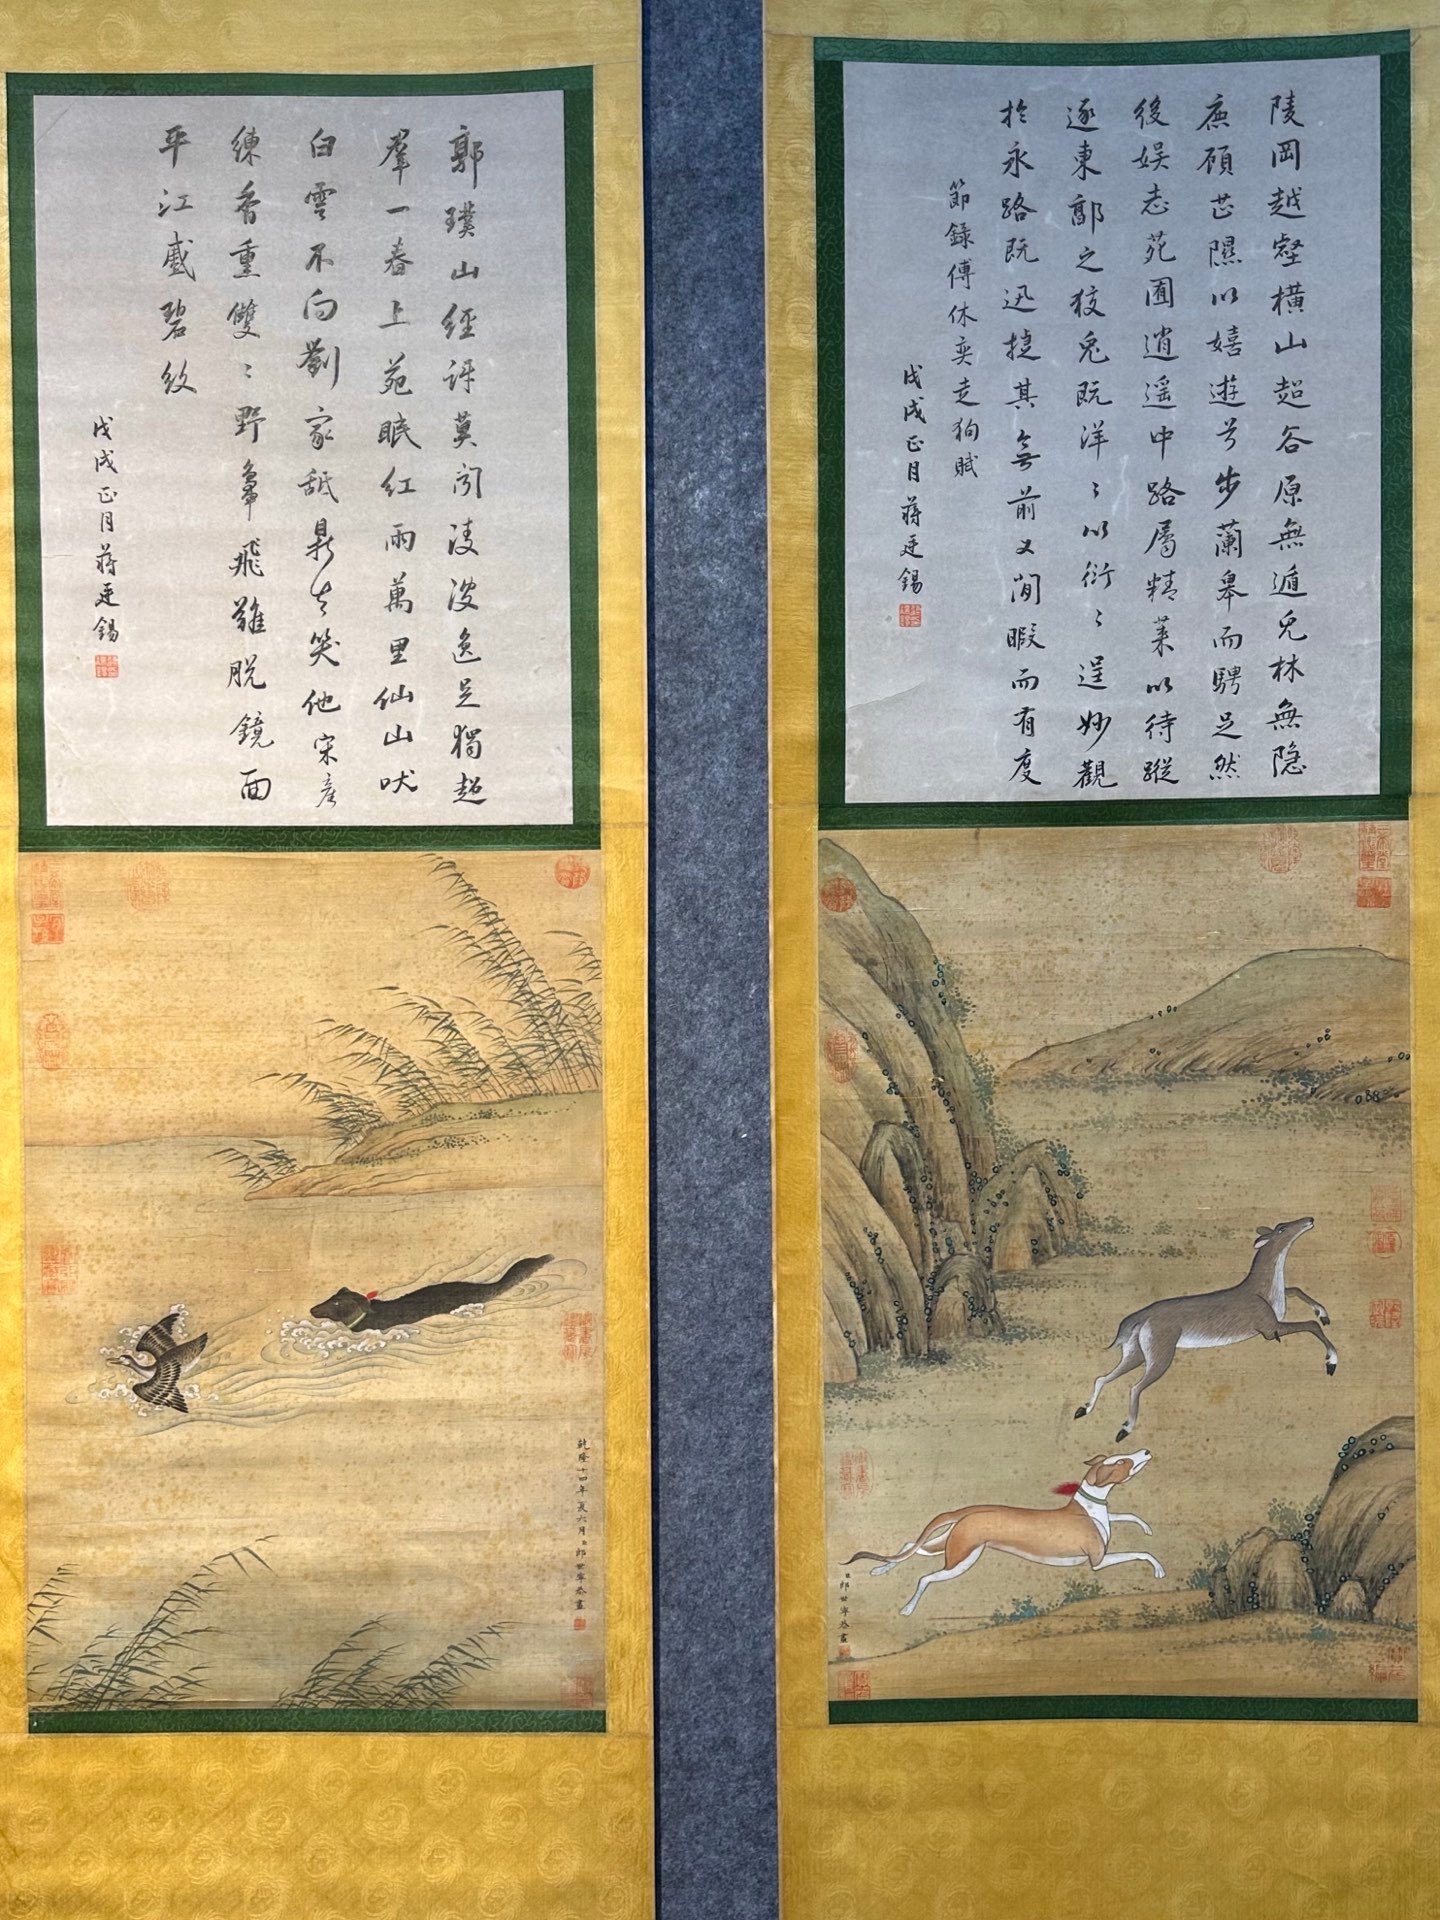 陵岡越壑橫山超谷原無遁兔林無隱
鹿顧芷隰以嬉遊兮步蘭皋而騁足然
後娱志苑囿逍遥中路屬精萊以待蹤
逐東郭之狡兔既洋〻以衍〻逞妙觀
於永路既迅捷其無前又閒暇而有度
節錄傅休奕走狗賦
戊戌正月蔣廷錫
臣郎世寧恭畫
郭璞山經訝莫闻凌波逸足獨超
羣一春上苑眠红雨萬里仙山吠
白雲不向劉家舐鼎去笑他宋産
練香重雙〻野鳧飛難脱鏡面
平江蹙碧紋
戊戌正月蔣廷錫
乾隆十四年夏六月臣郎世寧恭畫